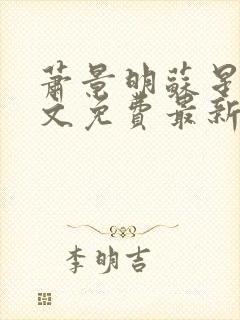 萧景明苏星
文免费最新
李明吉